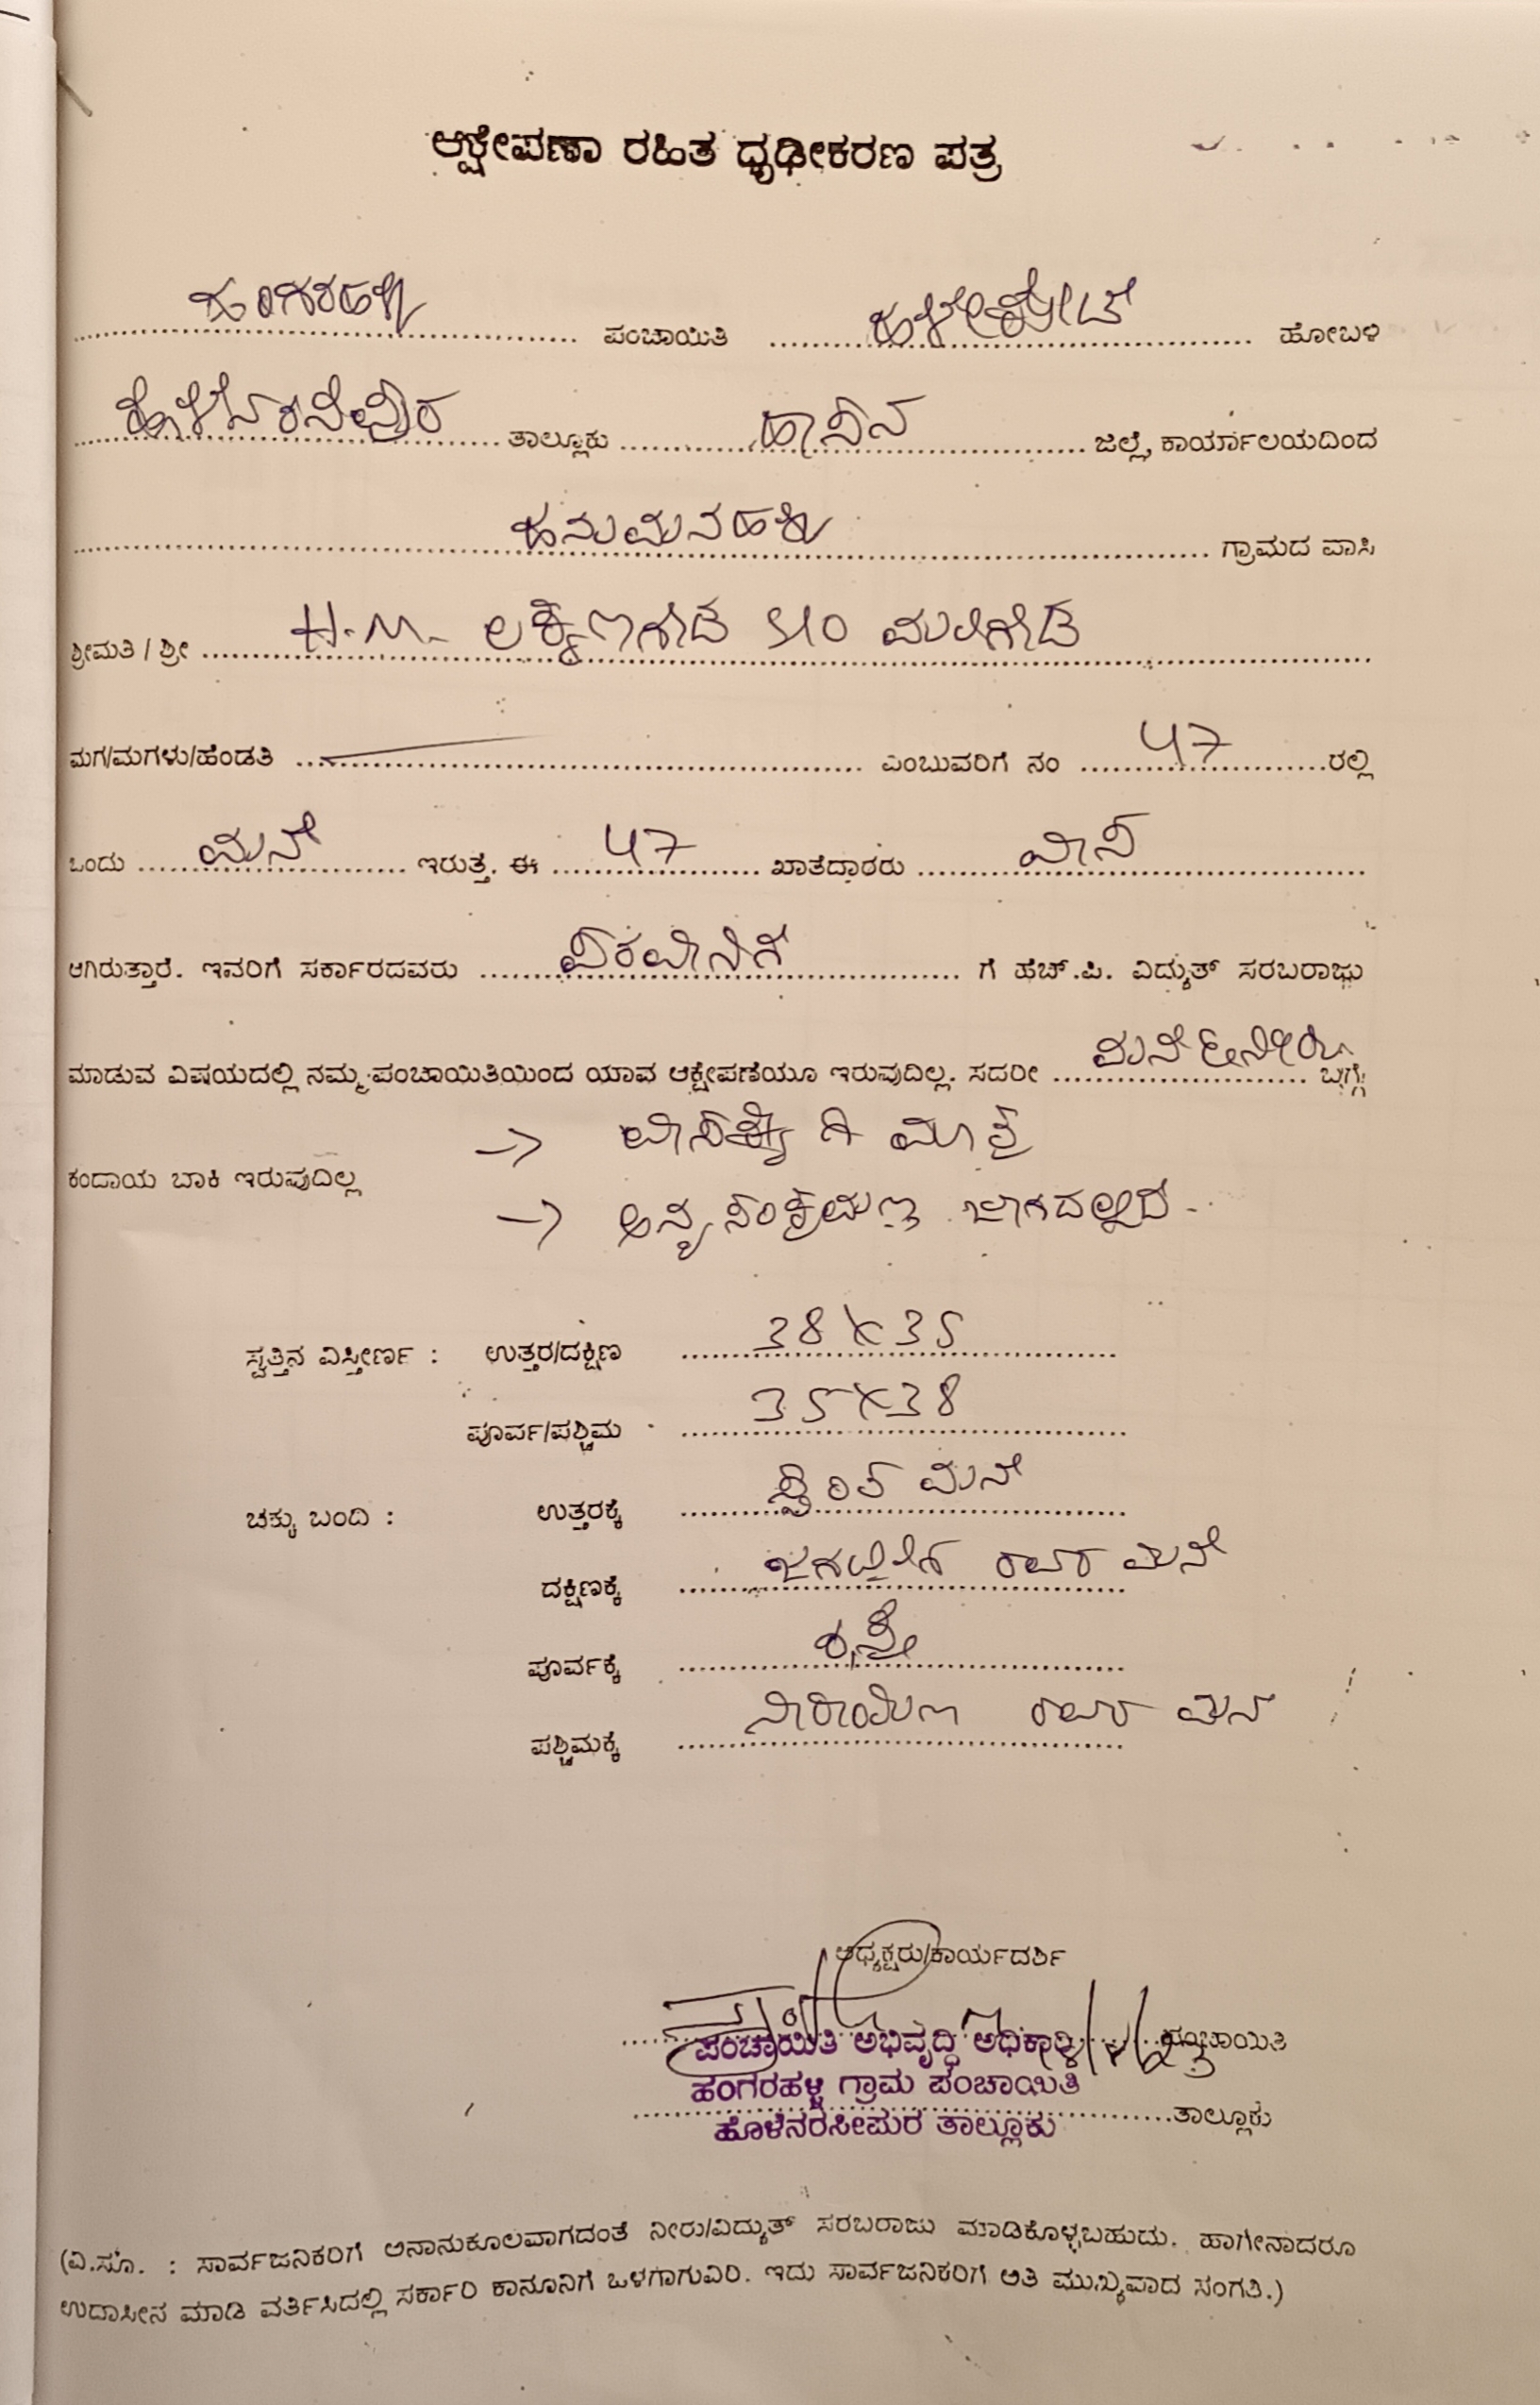 ಆಕ್ಷೇಪಣಾ ರಹಿತ ಧೃಢೀಕರಣ ಪತ್ರ
ಹಂಗರಹಳ್ಳಿ ಪಂಚಾಯಿತಿ ಹಳೇಕೋಟೆ ಹೋಬಳಿ
ಹೊಳೆನರಸೀಪುರ ತಾಲ್ಲೂಕು ಹಾಸನ ಜಿಲ್ಲೆ, ಕಾರ್ಯಾಲಯದಿಂದ
ಹನುಮನಹಳ್ಳಿ ಗ್ರಾಮದ ವಾಸಿ
ಶ್ರೀಮತಿ / ಶ್ರೀ H.M. ಲಕ್ಷ್ಮಣಗೌಡ S/o
ಮಗ/ಮಗಳು/ಹೆಂಡತಿ ಎಂಬುವರಿಗೆ ನಂ 47 ರಲ್ಲಿ
ಒಂದು ಮನೆ ಇರುತ್ತೆ. ಈ 47 ಖಾತೆದಾರರು ವಾಸ
ಆಗಿರುತ್ತಾರೆ. ಇವರಿಗೆ ಸರ್ಕಾರದವರು ಗೆ ಹೆಚ್.ಪಿ. ವಿದ್ಯುತ್ ಸರಬರಾಜು
ಮಾಡುವ ವಿಷಯದಲ್ಲಿ ನಮ್ಮ ಪಂಚಾಯಿತಿಯಿಂದ ಯಾವ ಆಕ್ಷೇಪಣೆಯೂ ಇರುವುದಿಲ್ಲ. ಸದರೀ ಮನೆ ಬಗ್ಗೆ
→ ವಾಸಕ್ಕಾಗಿ ಮಾತ್ರ
ಕಂದಾಯ ಬಾಕಿ ಇರುವುದಿಲ್ಲ
→ ಅನ್ಯಸಂಕ್ರಮಣ ಜಾಗದಲ್ಲಿದೆ.
ಸ್ವತ್ತಿನ ವಿಸ್ತೀರ್ಣ : ಉತ್ತರ/ದಕ್ಷಿಣ 38 X 35
ಪೂರ್ವ/ಪಶ್ಚಿಮ 35 X 38
ಚಕ್ಕು ಬಂದಿ : ಉತ್ತರಕ್ಕೆ ಸ್ವಂತ ಮನೆ
ದಕ್ಷಿಣಕ್ಕೆ ರವರ ಮನೆ
ಪೂರ್ವಕ್ಕೆ ರಸ್ತೆ
ಪಶ್ಚಿಮಕ್ಕೆ ನಾರಾಯಣ ರವರ ಮನೆ
ಅಧ್ಯಕ್ಷರು/ಕಾರ್ಯದರ್ಶಿ
ಪಂಚಾಯಿತಿ ಅಭಿವೃದ್ಧಿ ಅಧಿಕಾರಿ ಪಂಚಾಯಿತಿ
ಹಂಗರಹಳ್ಳಿ ಗ್ರಾಮ ಪಂಚಾಯಿತಿ
ಹೊಳೆನರಸೀಪುರ ತಾಲ್ಲೂಕು ತಾಲ್ಲೂಕು
(ವಿ.ಸೂ. : ಸಾರ್ವಜನಿಕರಿಗೆ ಅನಾನುಕೂಲವಾಗದಂತೆ ನೀರು/ವಿದ್ಯುತ್ ಸರಬರಾಜು ಮಾಡಿಕೊಳ್ಳಬಹುದು. ಹಾಗೇನಾದರೂ
ಉದಾಸೀನ ಮಾಡಿ ವರ್ತಿಸಿದಲ್ಲಿ ಸರ್ಕಾರಿ ಕಾನೂನಿಗೆ ಒಳಗಾಗುವಿರಿ. ಇದು ಸಾರ್ವಜನಿಕರಿಗೆ ಅತಿ ಮುಖ್ಯವಾದ ಸಂಗತಿ.)